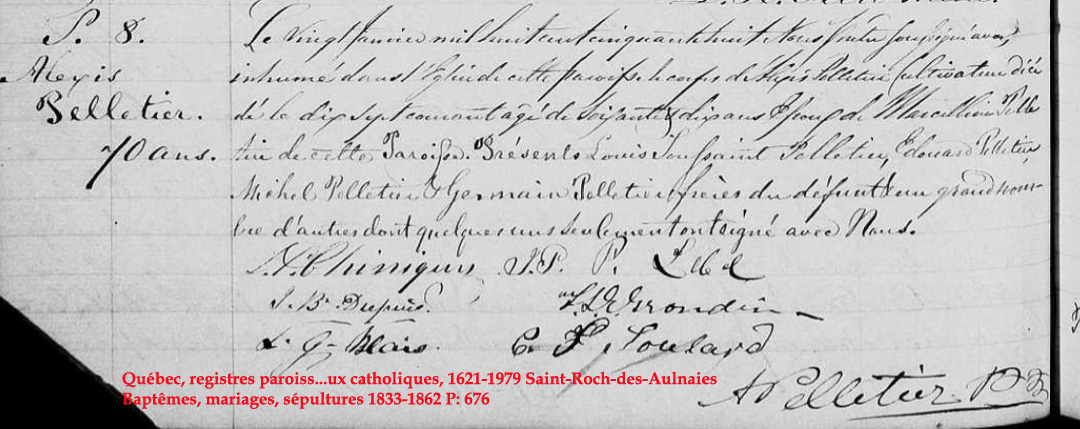 S. 8.
Alexis
Pelletier.
70 ans.
Le vingt Janvier mil huit cent cinquante huit Nous prêtre soussigné avons
inhumé dans l'Eglise de cette paroisse le corps d'Alexis Pelletier Cultivateur décé
dé le dix sept courant agé de soixante & dix ans Epoux de Marcelline Pelle
tier de cette Paroisse. Présents Louis Toussaint Pelletier, Edouard Pelletier,
Michel Pelletier & Germain Pelletier frères du défunt & un grand nom-
bre d'autres dont quelques uns seulement ont signé avec Nous.
Chiniquy J. P. P. Lebel
J. Bte Dupuis. Grondin
L. G. Blais. C. F. Soulard
A Pelletier
Québec, registres paroiss...ux catholiques, 1621-1979 Saint-Roch-des-Aulnaies
Baptêmes, mariages, sépultures 1833-1862 P: 676